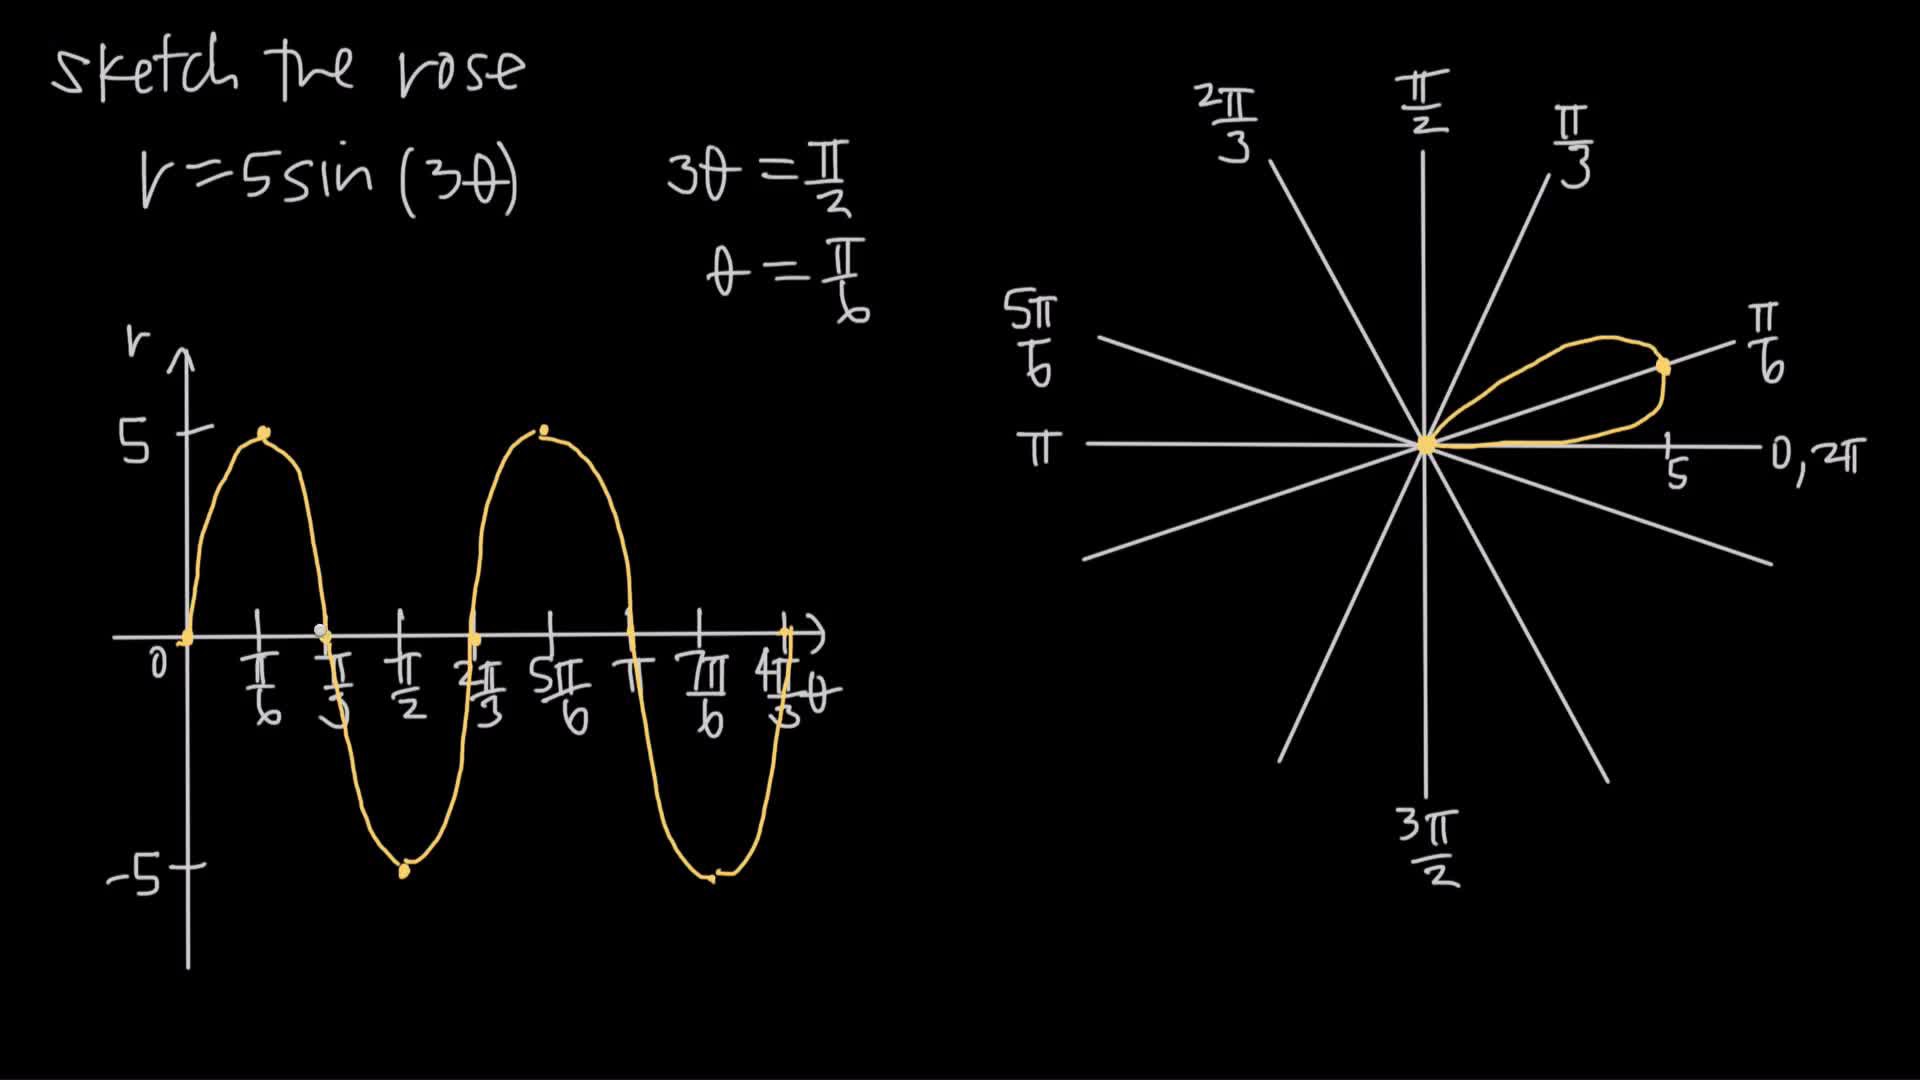 sketch the rose
r=5sin(3θ)
3θ=π/2
θ=π/6
r
5
0
π/6
π/3
π/2
2π/3
5π/6
π
7π/6
4π/3
θ
-5
2π/3
π/2
π/3
5π/6
π/6
π
5
0, 2π
3π/2